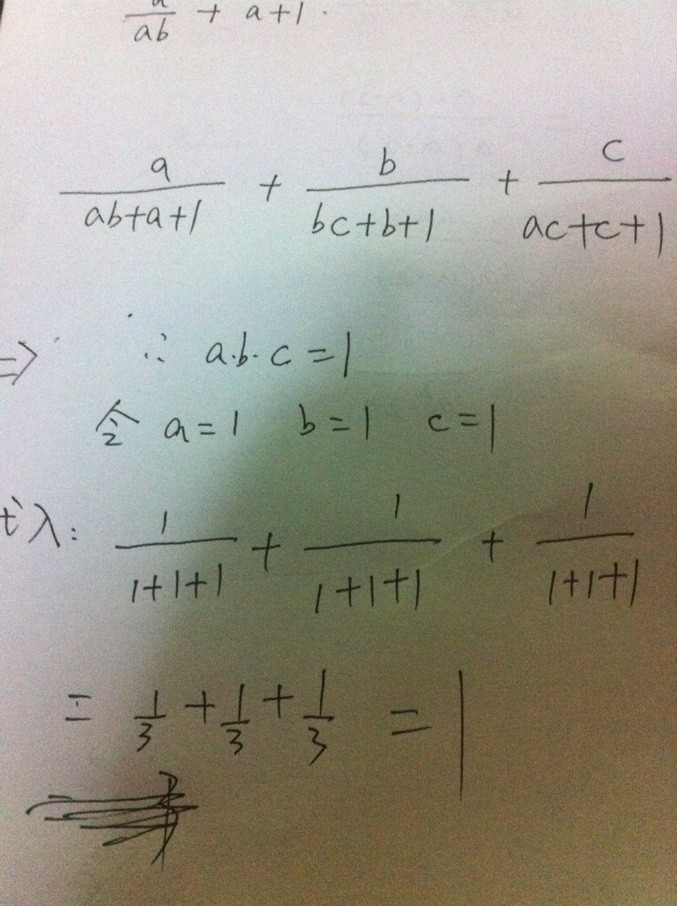 a/ab + a+1.
a/(ab+a+1) + b/(bc+b+1) + c/(ac+c+1)
=> ∵ a·b·c=1
令 a=1 b=1 c=1
代入: 1/(1+1+1) + 1/(1+1+1) + 1/(1+1+1)
= 1/3 + 1/3 + 1/3 = 1